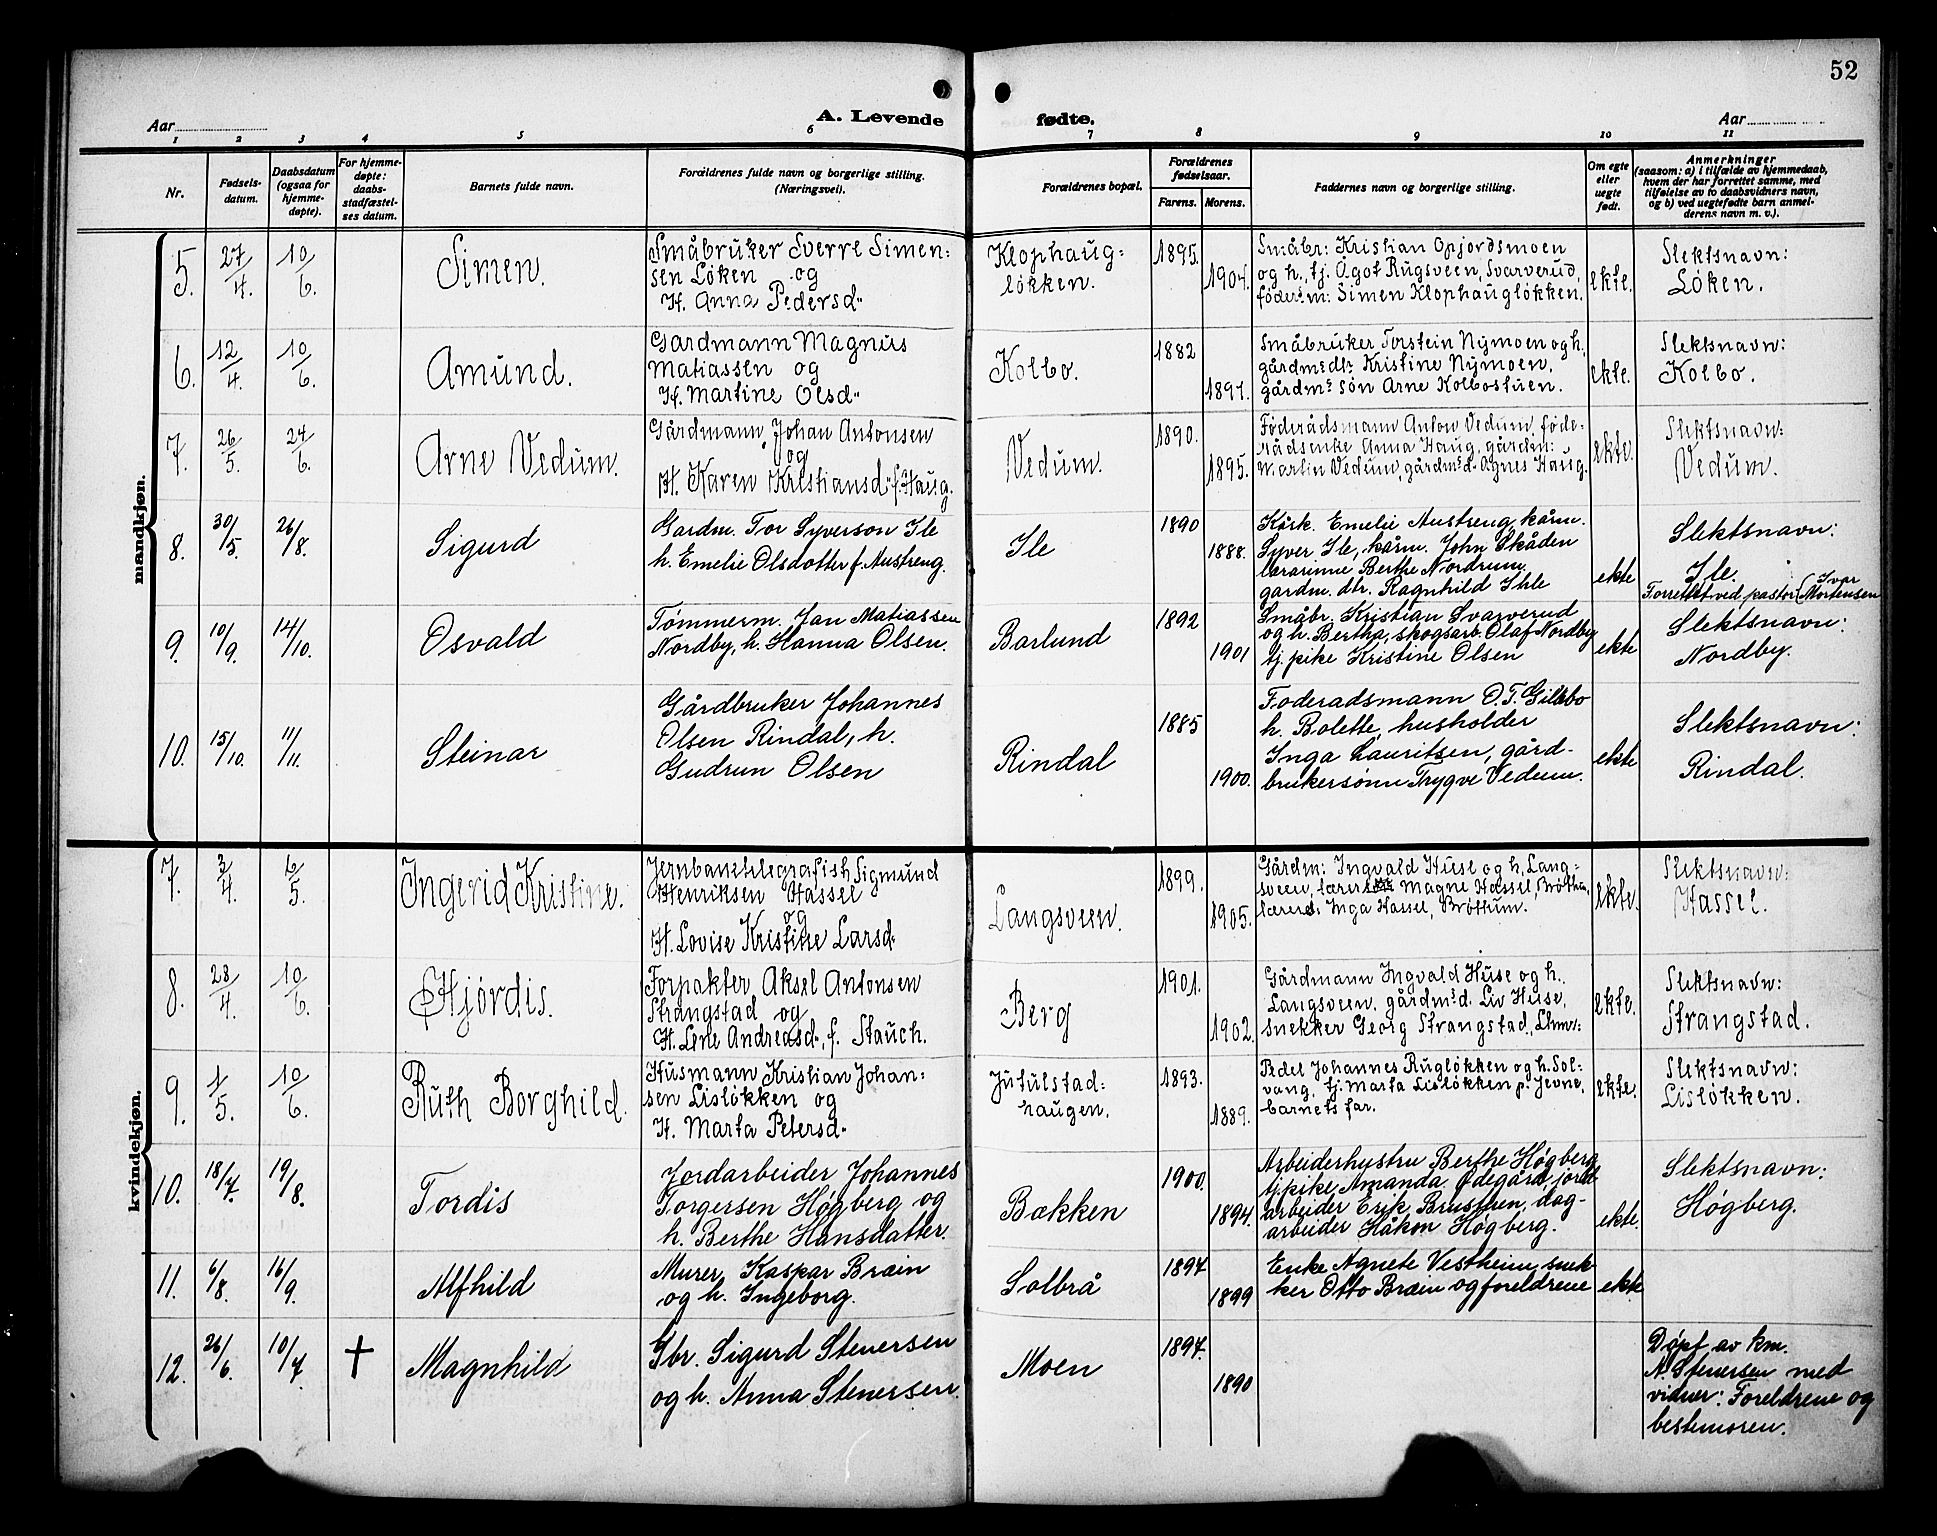 52
A. Levende fødte.
Aar
Aar
1 2 3 4 5 6 7 8 9 10 11
Nr.
Fødsels-
datum.
Daabsdatum
(ogsaa for
hjemme-
døpte).
For hjemme-
døpte:
daabs-
stadfæstel-
ses datum.
Barnets fulde navn.
Forældrenes fulde navn og borgerlige stilling.
(Næringsvei).
Forældrenes bopæl.
Forældrenes
fødselsaar.
Farens. Morens.
Faddernes navn og borgerlige stilling.
Om egte
eller
uegte
født.
Anmerkninger
(saasom: a) i tilfælde av hjemmedaab,
hvem der har forrettet samme, med
tilføielse av to daabsvidners navn,
og b) ved uegtefødte barn anmel-
derens navn m. v.).
mandkjøn.
5. 27/4. 10/6. Simen.
Småbruker Sverre Simen-
sen Löken og
H. Anna Pedersd.
Klophaug-
lökken.
1895. 1904.
Småbr: Kristian Opjordsmoen
og h., tj. Ågot Rugsveen, Svarverud,
föderm: Simen Klophauglökken.
ekte.
Slektsnavn:
Löken.
6. 12/4. 10/6. Amund.
Gardmann Magnus
Matiassen og
H. Martine Olsd.
Kolbo.
1882 1897.
Småbruker Torstein Nymoen og h.
gårdms dtr. Kristine Nymoen,
gårdms sön Arne Kolbostuen.
ekte.
Slektsnavn:
Kolbo.
7. 26/5. 24/6. Arne Vedum.
Gårdmann Johan Antonsen
og
H. Karen Kristiansd. f. Haug.
Vedum.
1890. 1895.
Föderådsmann Anton Vedum, föde-
rådsenke Anna Haug, gårdm:
Martin Vedum, gårdms d. Agnes Haug.
ekte.
Slektsnavn:
Vedum.
8. 30/5. 26/8. Sigurd
Gardm. Tor Syverson Ile
h. Emelie Olsdotter f. Austreng.
Ile
1890 1888.
Kårk. Emelie Austreng, kårm.
Syver Ile, kårm. John Skåden
lærarinne Berthe Nordrum,
gardm. dtr. Ragnhild Ihle
ekte
Slektsnavn:
Ile.
Forrettet ved pastor Ivar
Mortensen
9. 10/9. 14/10. Osvald
Tømmerm. Jan Matiassen
Nordby, h. Hanna Olsen.
Barlund
1892 1901
Småbr. Kristian Svarverud
og h. Bertha, skogsarb. Olaf Nordby
tj. pike Kristine Olsen
ekte
Slektsnavn:
Nordby.
10. 15/10. 11/11. Steinar
Gårdbruker Johannes
Olsen Rindal, h.
Gudrun Olsen
Rindal
1885 1900.
Foderadsmann O. T. Gillebo
h. Bolette, husholder
Inga Lauritsen, gård-
brukersønn Trygve Vedum.
ekte
Slektsnavn:
Rindal.
kvindekjøn.
7. 3/4. 6/5. Ingerid Kristine.
Jernbanetelegrafist Sigmund
Henriksen Hassel
og
H. Lovise Kristine Larsd.
Langsveen.
1899. 1905.
Gårdm: Ingvald Huse og h, Lang-
sveen, lærer Magne Hassel, Bröttum,
lærer: Inga Hassel, Bröttum.
ekte.
Slektsnavn:
Hassel.
8. 28/4. 10/6. Hjördis.
Forpakter Aksel Antonsen
Strangstad og
H. Lene Andreasd., f. Stauch.
Berg
1901. 1902.
Gårdmann Ingvald Huse og h.
Langsveen, gårdms d. Liv Huse,
snekker Georg Strangstad, Lhmr:
ekte.
Slektsnavn:
Strangstad.
9. 1/5. 10/6. Ruth Borghild.
Husmann Kristian Johan-
sen Lislökken og
H. Marta Petersd.
Jutulstad-
haugen.
1893. 1889.
Pedel Johannes Ruglökken og h. Sol-
vang, tj. Marta Lislökken p. Jevne,
barnets far.
ekte.
Slektsnavn:
Lislökken.
10. 18/7. 19/8. Tordis
Jordarbeider Johannes
Torgersen Høgberg og
h. Berthe Hansdatter.
Bakken
1900. 1894.
Arbeiderhustru Berthe Høgberg
tj. pike Amanda Ødegård, jord-
arbeider Erik Brusthen, dag-
arbeider Håkon Høgberg.
ekte.
Slektsnavn:
Høgberg.
11. 6/8. 16/9. Alfhild
Murer Kaspar Bræin
og h. Ingeborg.
Solbrå
1897 1899
Enke Agnete Vestheim, snek-
ker Otto Bræin og foreldrene
ekte
12. 26/6. 10/7. + Magnhild
Gbr. Sigurd Stenersen
og h. Anna Stenersen.
Moen
1897. 1890
Døpt av km.
N. Stenersen med
vidner: Foreldrene og
bestemoren.